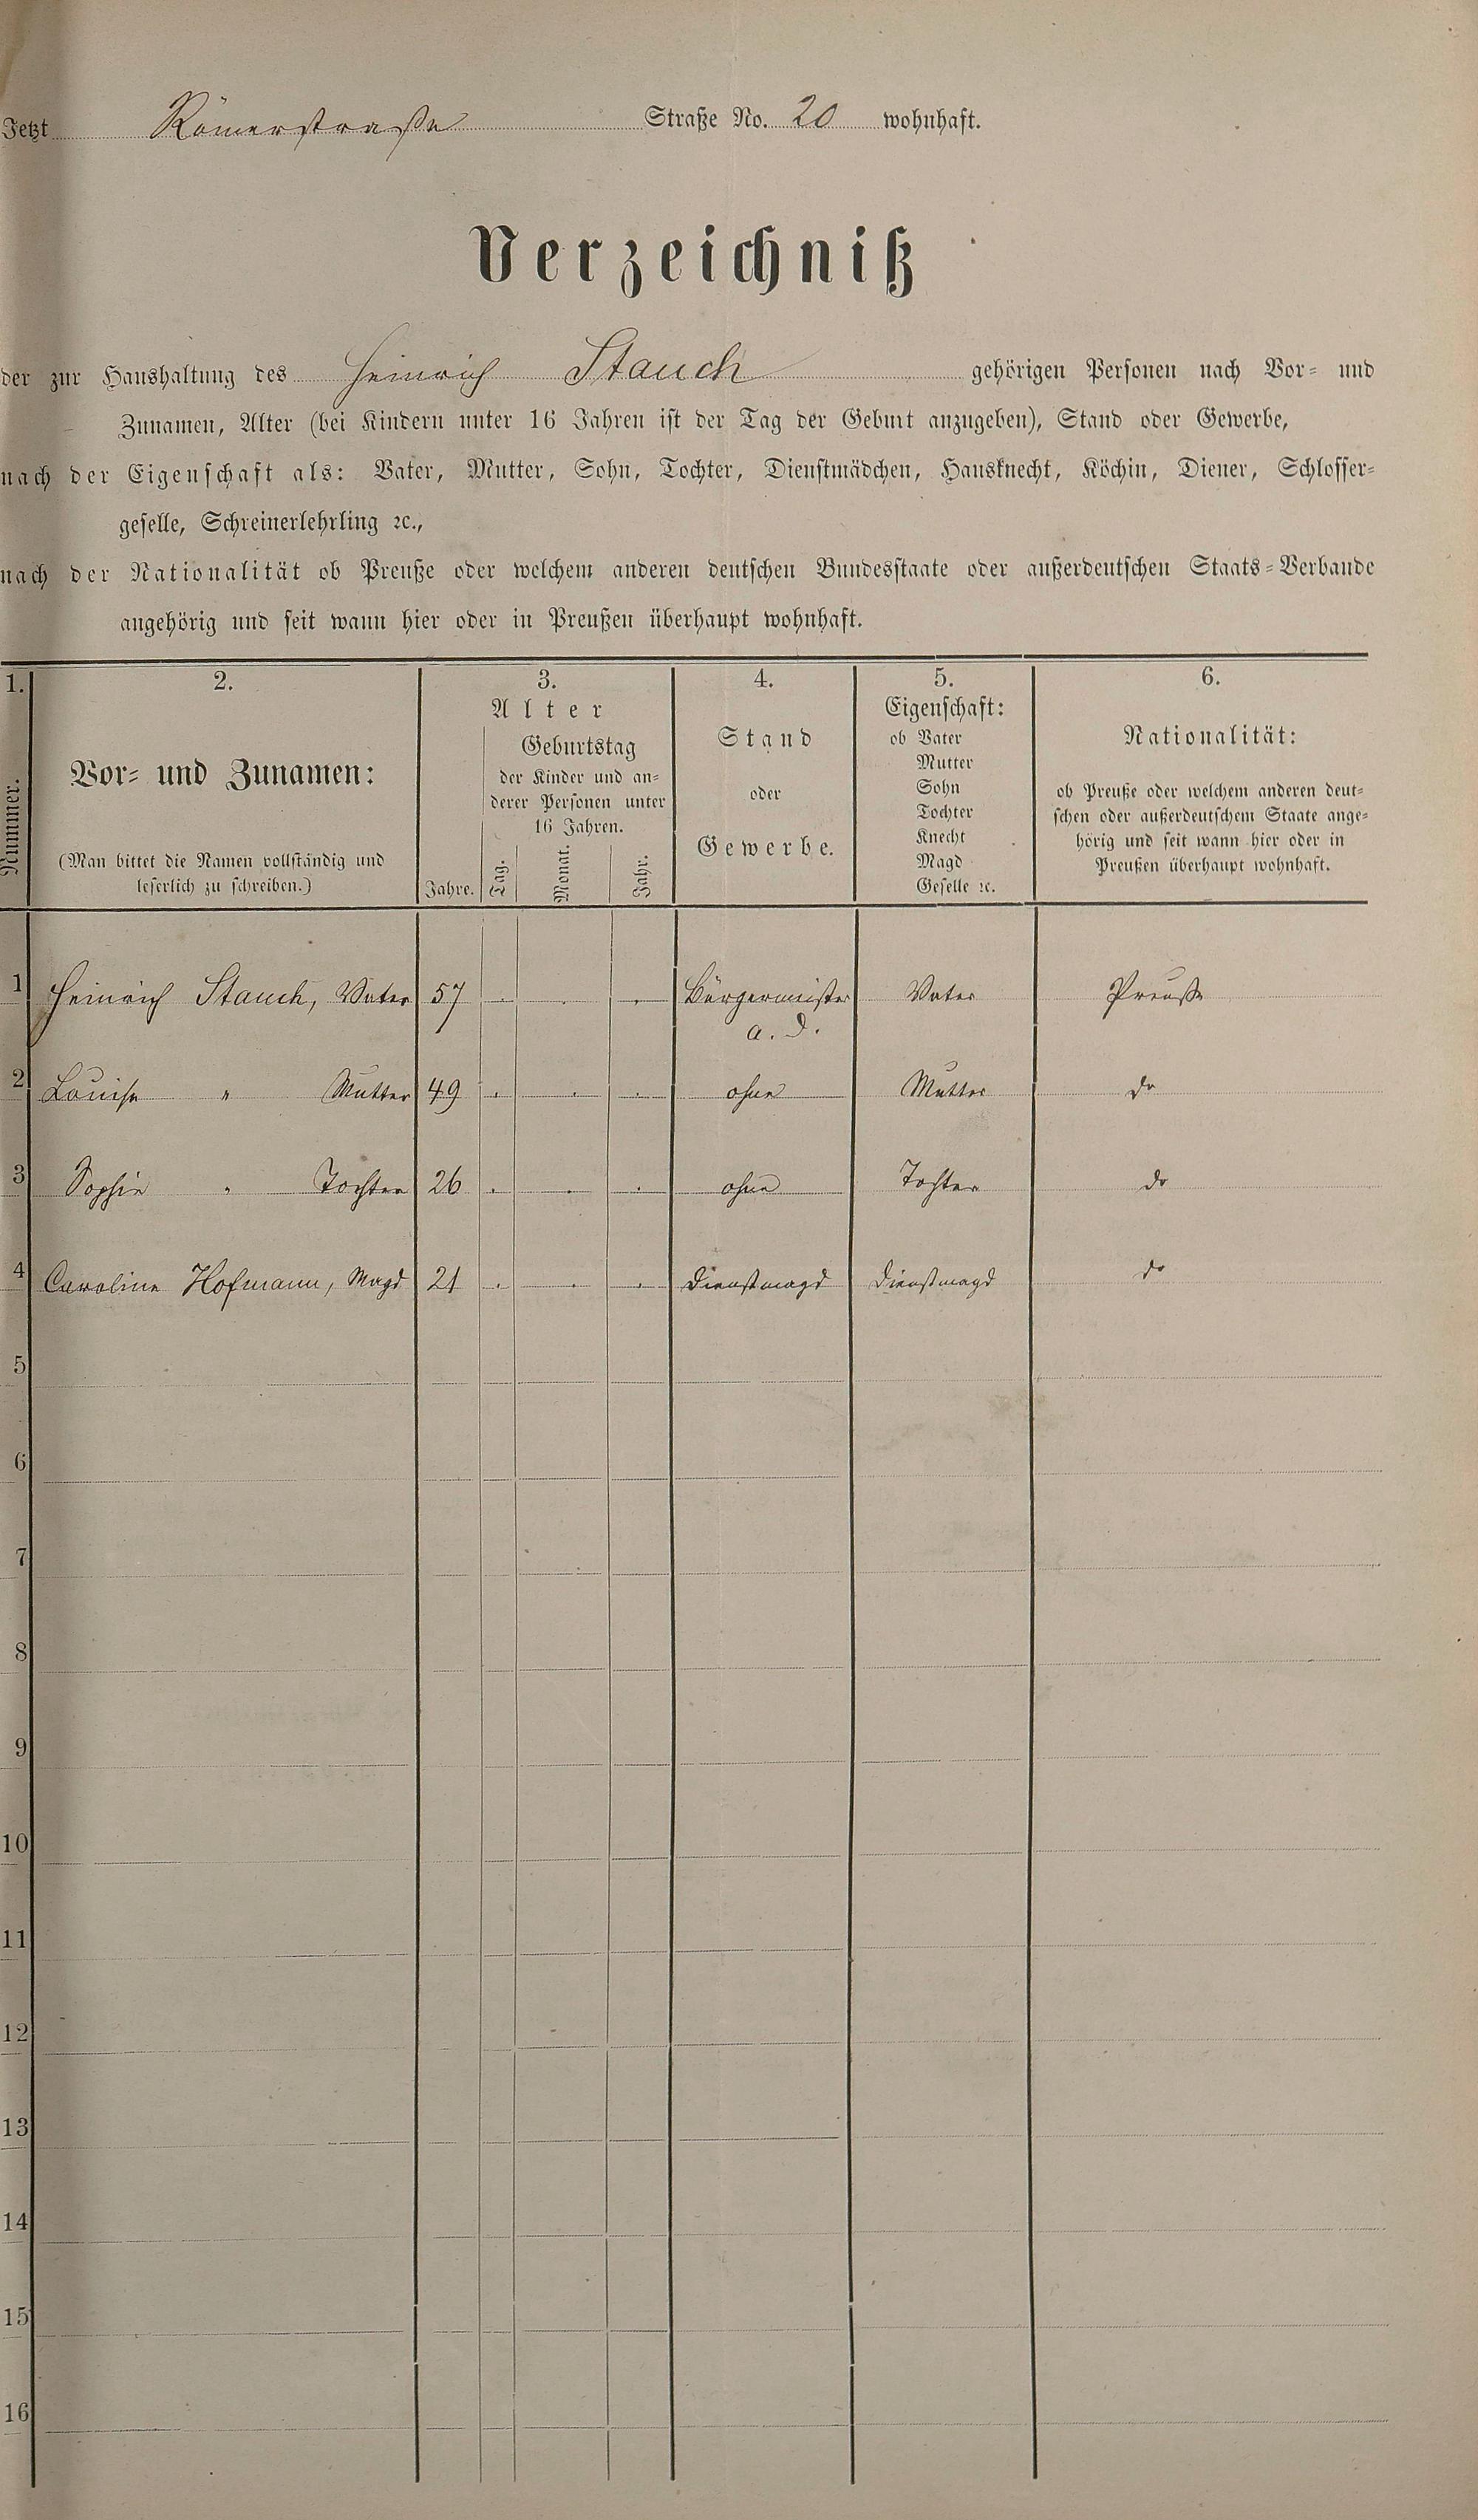 Jetzt Römerstraße Straße No. 20 wohnhaft.
Verzeichniß
der zur Haushaltung des Heinrich Stauch gehörigen Personen nach Vor- und
Zunamen, Alter (bei Kindern unter 16 Jahren ist der Tag der Geburt anzugeben), Stand oder Gewerbe,
nach der Eigenschaft als: Vater, Mutter, Sohn, Tochter, Dienstmädchen, Hausknecht, Köchin, Diener, Schlosser-
geselle, Schreinerlehrling ꝛc.,
nach der Nationalität ob Preuße oder welchem anderen deutschen Bundesstaate oder außerdeutschen Staats-Verbande
angehörig und seit wann hier oder in Preußen überhaupt wohnhaft.
1.
Nummer.
2.
Vor- und Zunamen:
(Man bittet die Namen vollständig und
leserlich zu schreiben.)
3.
Alter
Jahre.
Geburtstag
der Kinder und an-
derer Personen unter
16 Jahren.
Tag.
Monat.
Jahr.
4.
Stand
oder
Gewerbe.
5.
Eigenschaft:
ob Vater
Mutter
Sohn
Tochter
Knecht
Magd
Geselle ꝛc.
6.
Nationalität:
ob Preuße oder welchem anderen deut-
schen oder außerdeutschem Staate ange-
hörig und seit wann hier oder in
Preußen überhaupt wohnhaft.
1 Heinrich Stauch, Vater 57 . . . Bürgermeister Vater Preuße
a. D.
2 Louise " Mutter 49 . . . ohne Mutter do
3 Sophie " Tochter 26 . . . ohne Tochter do
4 Caroline Hofmann, Magd 21 . . . Dienstmagd Dienstmagd do
5
6
7
8
9
10
11
12
13
14
15
16